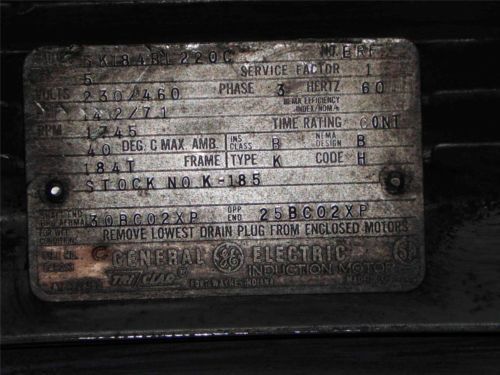 5K184BL220C NO. ERF
5 SERVICE FACTOR 1
VOLTS 230/460 PHASE 3 HERTZ 60
14.2/7.1 NEMA EFFICIENCY INDEX/NOM.%
RPM 1745 TIME RATING CONT
40 DEG. C MAX. AMB. INS CLASS B NEMA DESIGN B
184T FRAME TYPE K CODE H
STOCK NO K-185
30BC02XP OPP END 25BC02XP
REMOVE LOWEST DRAIN PLUG FROM ENCLOSED MOTORS
GENERAL GE ELECTRIC
TRI CLAD ® INDUCTION MOTOR
FORT WAYNE, INDIANA